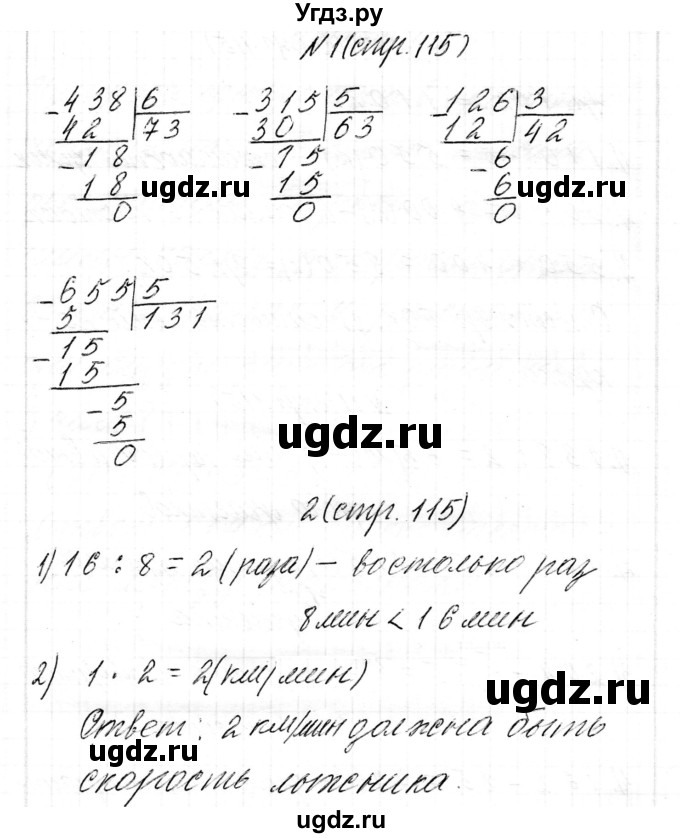 Угдз.ру
№1(стр.115)
- 438 | 6
42 | 73
- 18
18
0
- 315 | 5
30 | 63
- 15
15
0
- 126 | 3
12 | 42
- 6
6
0
ugdz.ru ugdz.ru
- 655 | 5
5 | 131
- 15
15
- 5
5
0
ugdz.ru
2(стр.115)
1) 16 : 8 = 2 (раза) – востолько раз
8 мин < 16 мин
2) 1 · 2 = 2 (км/мин)
ugdz.ru
Ответ: 2 км/мин должна быть
ugdz.ru
скорость лыжника.
ugdz.ru